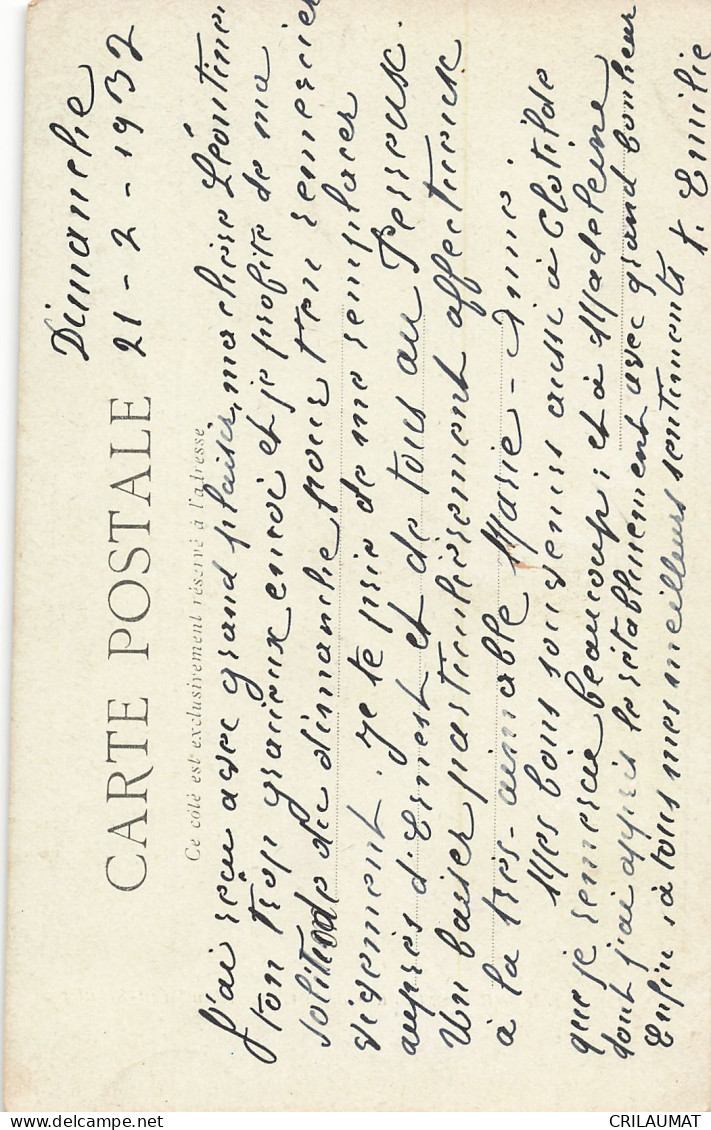 Dimanche
21-2-1932
CARTE POSTALE
Ce côté est exclusivement réservé à l'adresse
J'ai reçu avec grand plaisir, ma chère Léontine
ton trop gracieux envoi et je profite de ma
solitude du dimanche pour t'en remercier
vivement. Je te prie de me remplacer
auprès d'Ernest et de tous au Perreux.
Un baiser particulièrement affectueux
à la très-aimable Marie-Anne.
Mes bons souvenirs aussi à Clotilde
que je remercie beaucoup ; et à Madeleine
dont j'ai appris le rétablissement avec grand bonheur
Enfin, à tous mes meilleurs sentiments
Emilie
Delcampe.net
CRILAUMAT